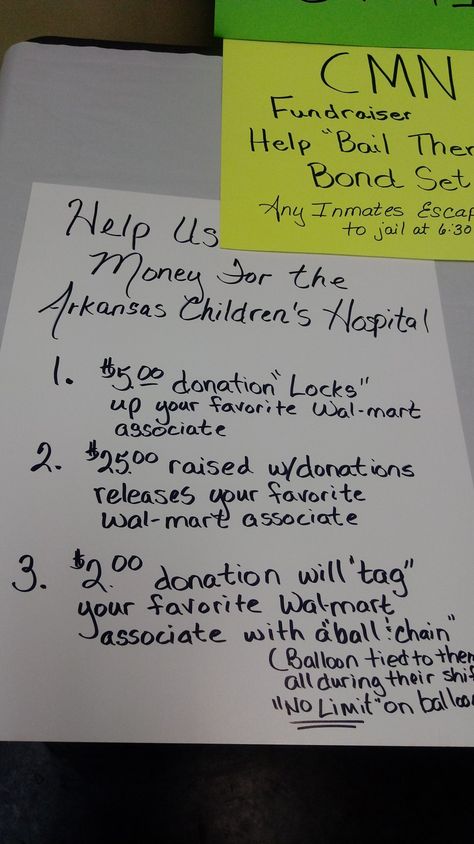 CMN
Fundraiser
Help "Bail
Bond Set
Any Inmates
to jail at 6:30
Help Us
Money For the
Arkansas Children's Hospital
1. $5.00 donation "Locks"
up your favorite Wal-mart
associate
2. $25.00 raised w/donations
releases your favorite
Wal-mart associate
3. $2.00 donation will "tag"
your favorite Walmart
associate with a "ball & chain"
(Balloon tied to them
all during their shift
"No Limit" on